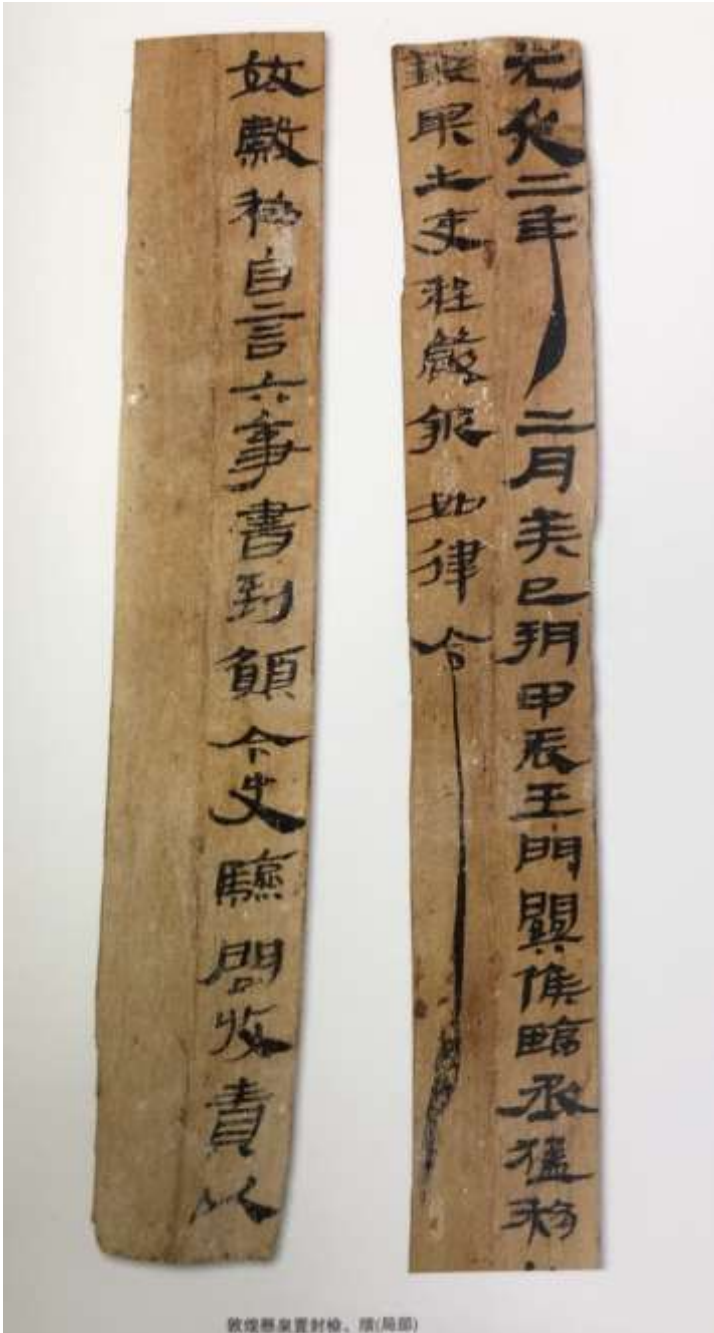 元延二年二月癸巳朔甲辰玉門關候臨丞猛移
士吏程嚴報如律令
效穀移自言六事書到願令史驗問收責以
敦煌懸泉置封檢、牘(局部)